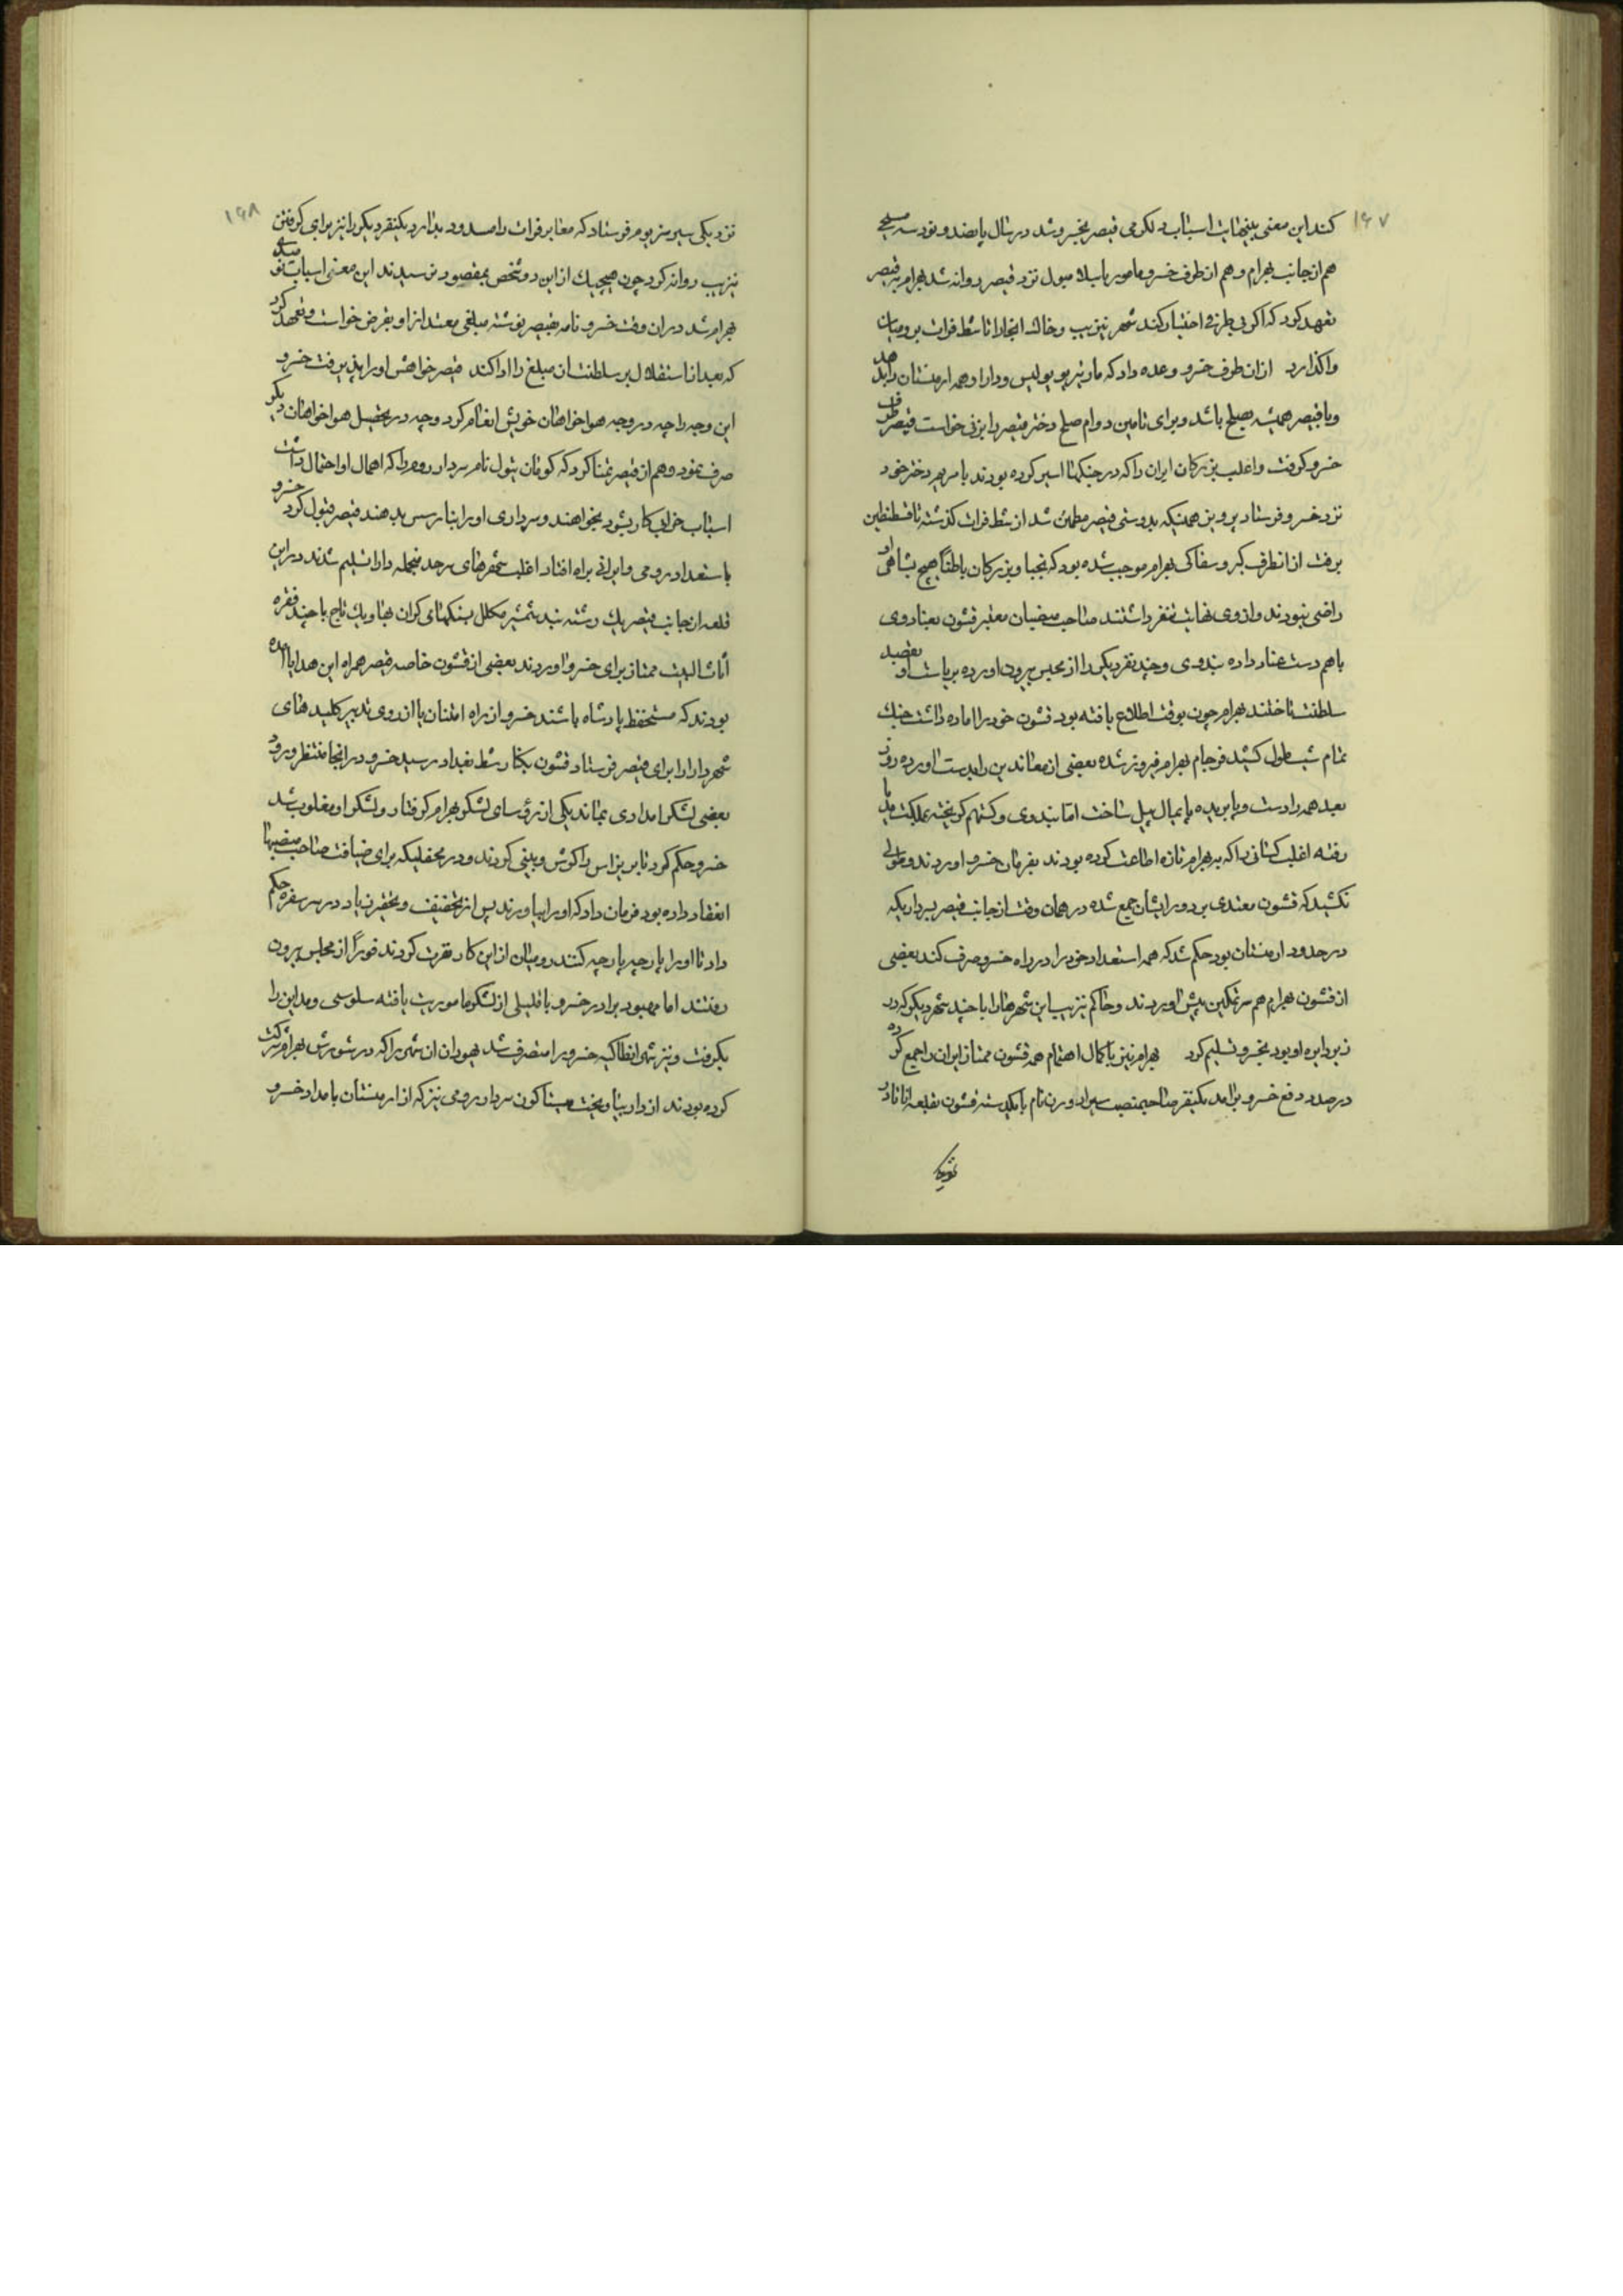 ۱۶۷
کند این معنی بینهایت اسباب دلگرمی قیصر بخسرو شد در سال پانصد و نود سه مسیحی
هم از جانب بهرام و هم از طرف خسرو مامور باسلامبول نزد قیصر روانه شد بهرام به قیصر
تعهد کرد که اگر بی طرفی اختیار کند شهر نیزیب و خاک انجا را تا شط فرات برومیان
واگذارد از ان طرف خسرو وعده داد که مارتیروپولیس و دارا و همه ارمنستان را بدهد
و با قیصر همیشه بصلح باشد و برای تامین دوام صلح دختر قیصر را بزنی خواست قیصر طرف
خسرو گرفت و اغلب بزرکان ایران را که در جنگها اسیر کرده بودند با مریم دختر خود
نزد خسرو فرستاد پرویز همینکه بدوستی قیصر مطمئن شد از شط فرات گذشته تا قسطنطین
برفت از انطرف کبر و سفاکی بهرام موجب شده بود که نجبا و بزرکان باطناً هیچ بشاهی او
راضی نبودند و از وی نهایت تنفر داشتند صاحب منصبان معتبر قشون بعناد وی
باهم دست عناد داده بندوی و چند نفر دیگر را از محبس بیرون اورده بریاست او بقصد
سلطنت تاختند بهرام چون بوقت اطلاع یافته بود قشون خود را اماده داشت جنگ
تمام شب طول کشید فرجام بهرام فیروز شده بعضی از معاندین را بدست اورده روز
بعد همه را دست و پا بریده پایمال پیل ساخت اما بندوی و کستهم گریخته بمملکت مدیا
رفته اغلب کسانی را که به بهرام تازه اطاعت کرده بودند بفرمان خسرو اوردند و طولی
نکشید که قشون معتدی بر دور ایشان جمع شده در همان وقت از جانب قیصر بسرداریکه
در حدود ارمنستان بود حکم شد که همه استعداد خود را در راه خسرو صرف کند بعضی
از قشون بهرام هم سر تمکین پیش اوردند و حاکم نیزیب این شهرها را با چند شهر دیگر که در
زیر دایره او بود بخسرو تسلیم کرد بهرام نیز با کمال اهتمام همه قشون ممتاز ایران را جمع کرده
در صدد دفع خسرو برامد یکنفر صاحبمنصب میرادورن نام با یکدسته قشون بقلعه اناتاد
نزدیک
۱۶۸
نزدیکی سیرسزیوم فرستاد که معابر فرات را مسدود بدارد یکنفر دیگر را نیز برای گرفتن
نیزیب روانه کرد چون هیچیک از این دو شخص بمقصود نرسیدند این معنی اسباب نومیدی
بهرام شد در ان وقت خسرو نامه بقیصر نوشته مبلغی معتد از او بقرض خواست و تعهد کرد
که بعد از استقلال بر سلطنت ان مبلغ را ادا کند قیصر خواهش او را پذیرفت خسرو
این وجه را چه در وجه هواخواهان خویش انعام کرد و چه در تحصیل هواخواهان دیگر
صرف نمود و هم از قیصر تمنا کرد که کومان تیول نام سردار روم را که اهمال او احتمال داشت
اسباب خرابی کار بشود بخواهند و سرداری او را بنارسس بدهند قیصر قبول کرد خسرو
با استعداد رومی و ایرانی براه افتاد اغلب شهرهای سرحد منجمله دارا تسلیم شدند در این
قلعه از جانب قیصر یک رشته بند شمشیر مکلل بسنگهای گران بها و یک تاج با چند فقره
اثاث البیت ممتاز برای خسرو اوردند بعضی از قشون خاصه قیصر همراه این هدایا امده
بودند که مستحفظ پادشاه باشند خسرو از راه امتنان یا از روی تدبیر کلیدهای
شهر دارا را برای قیصر فرستاد قشون بکنار شط بغداد رسید خسرو در انجا منتظر ورود
بعضی لشکر امدادی بماند یکی از رؤسای لشکر بهرام گرفتار و لشکر او مغلوب شد
خسرو حکم کرد تا بریزاس را گوش و بینی کردند و در محفلیکه برای ضیافت صاحب منصبها
انعقاد داده بود فرمان داد که او را بیاورند پس از تخفیف و تحقیر زیاد در سر سفره حکم
داد تا او را پارچه پارچه کنند رومیان از این کار نفرت کردند فوراً از مجلس بیرون
رفتند اما مهبود برادر خسرو با قلیلی از لشکر ماموریت یافته سلوسی و مداین را
بگرفت و نیز شهر انطاکیه خسرو را متصرف شد یهودان ان شهر را که در شورش بهرام شرکت
کرده بودند از دار بیاویخت میستاکون سردار رومی نیز که از ارمنستان بامداد خسرو